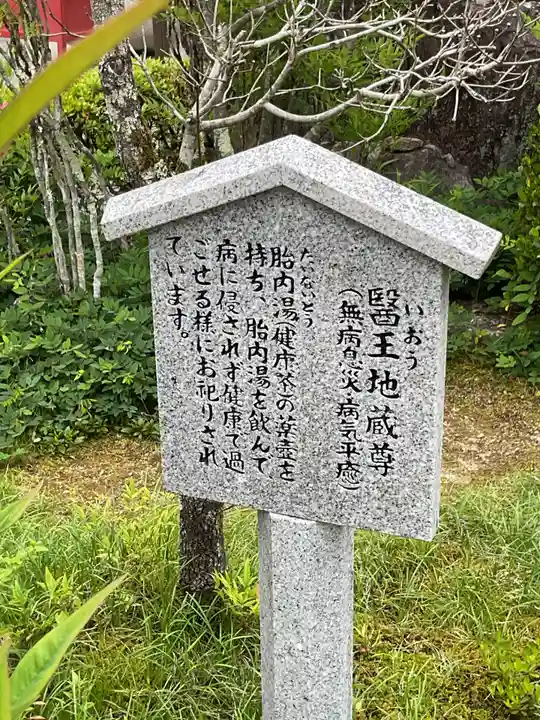 いおう
醫王地蔵尊
（無病息災・病気平癒）
たいないとう
胎内湯（健康茶）の薬壺を
持ち、胎内湯を飲んで、
病に侵されず健康で過
ごせる様にお祀りされ
ています。